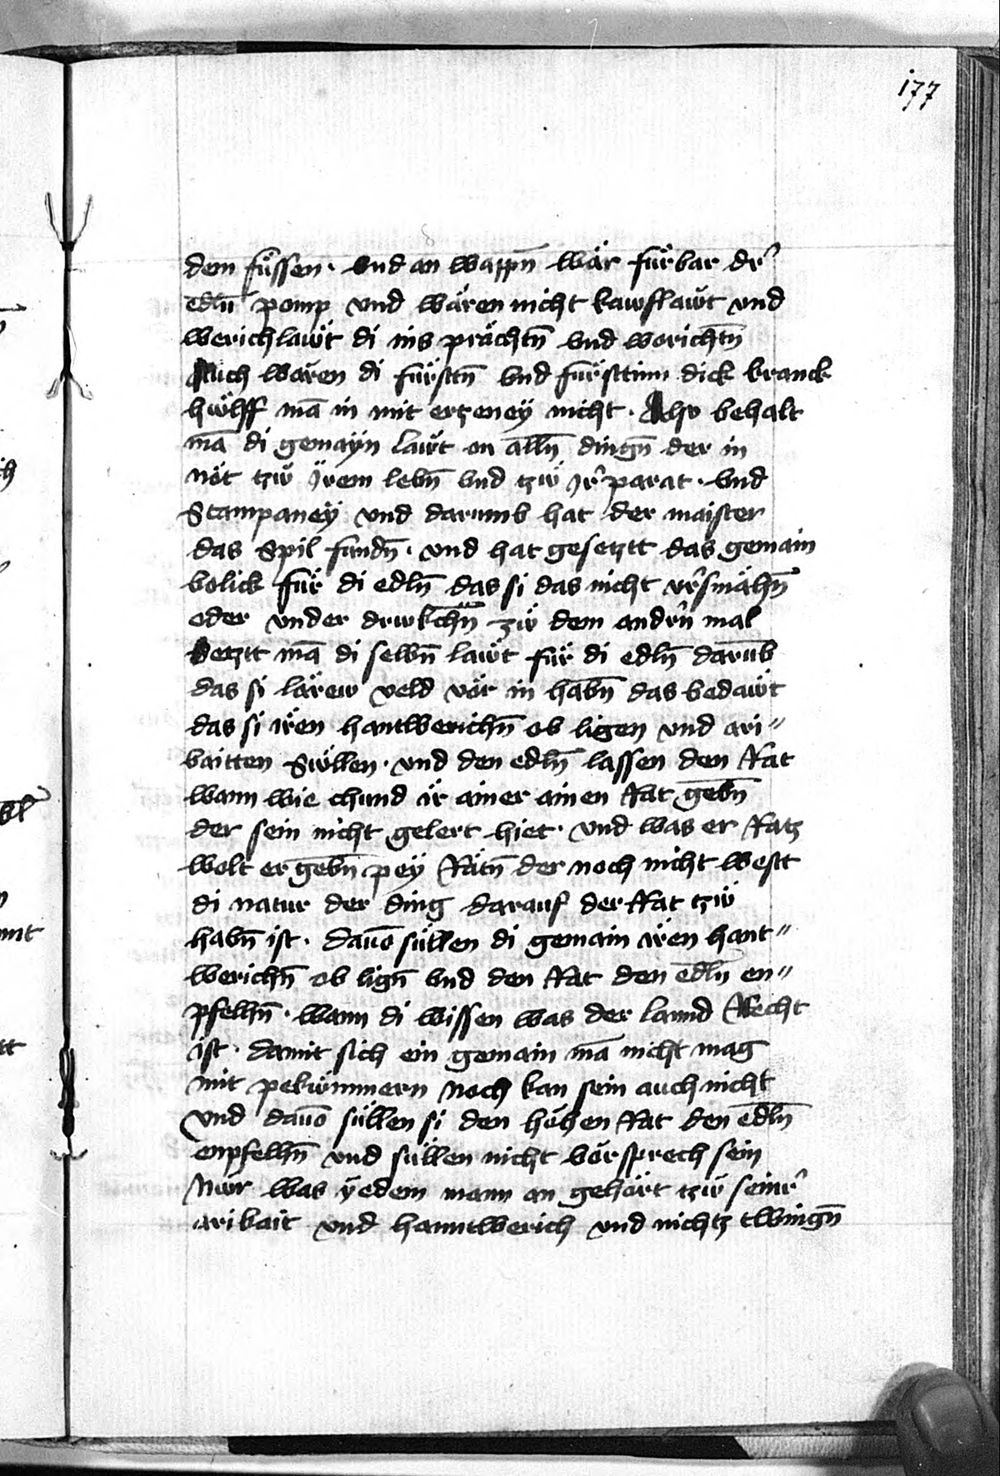 177
dem fuͤssen · vnd an wappn̄ wär fürbar dr̄
edln̄ pomp vnd wären nicht kawfläwt vnd
werichlawt di ins prächtn̄ vnd worichtn̄
Auch wären di fürstn̄ vnd fürsttinn dick kranck
hwlff mā in mit erczeney nicht · Also behalt
mā di gemayn lawt an alln̄ dingn̄ der in
not tzw Irem lebn̄ vnd tzw Ir̄ parat · vnd
Stampaney vnd darumb hat der maister
das Spil fundn̄ · vnd hat gesetztt das gemain
volick für di edln̄ das si das nicht vr̄smähn̄
oder vnder drukchn̄ zw dem andrn̄ mal
Setztt mā di selbn̄ lawt für di edln̄ darūb
das si lärew veld vor in habn̄ das bedawt
das si iren hantwerichn̄ ob ligen vnd ari〃
baitten Süllen · vnd den edln̄ lassen den Rat
wann wie chund ir ainer ainen Rat gebn̄
der sein nicht gelert hiet · vnd was er Ratz
wolt er gebn̄ pey Rätn̄ der noch nicht westt
di natur der ding darauf der Rat tzw
habn̄ ist · dauō süllen di gemain iren hant〃
werichn̄ ob lign̄ vnd den Rat den edln̄ en〃
pfelhn̄ · wann di wissen was der lannd Recht
ist · damit sich ein gemain mā nicht mag
mit pekümmern noch kan sein auch nicht
vnd dauō süllen si den höhen Rat den edln̄
enpfelhn̄ vnd süllen nicht vorsprech sein
Nwr was yedem mann an gehört tzw seinr̄
aribait vnd hanntwerich vnd nichtz twingn̄